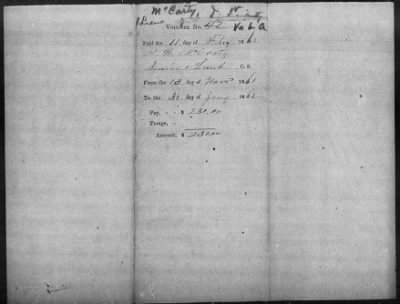 McCarty, J W
1 Lieut
Voucher No. 42 Va L A
Paid the 11 day of 186
J W McCarty
Lieut C. S.
From the 13 day of Novr 1861
To the 31 day of Jany 1862
Pay, - - $ 231.00
Forage, -
Amount, $ 231.00